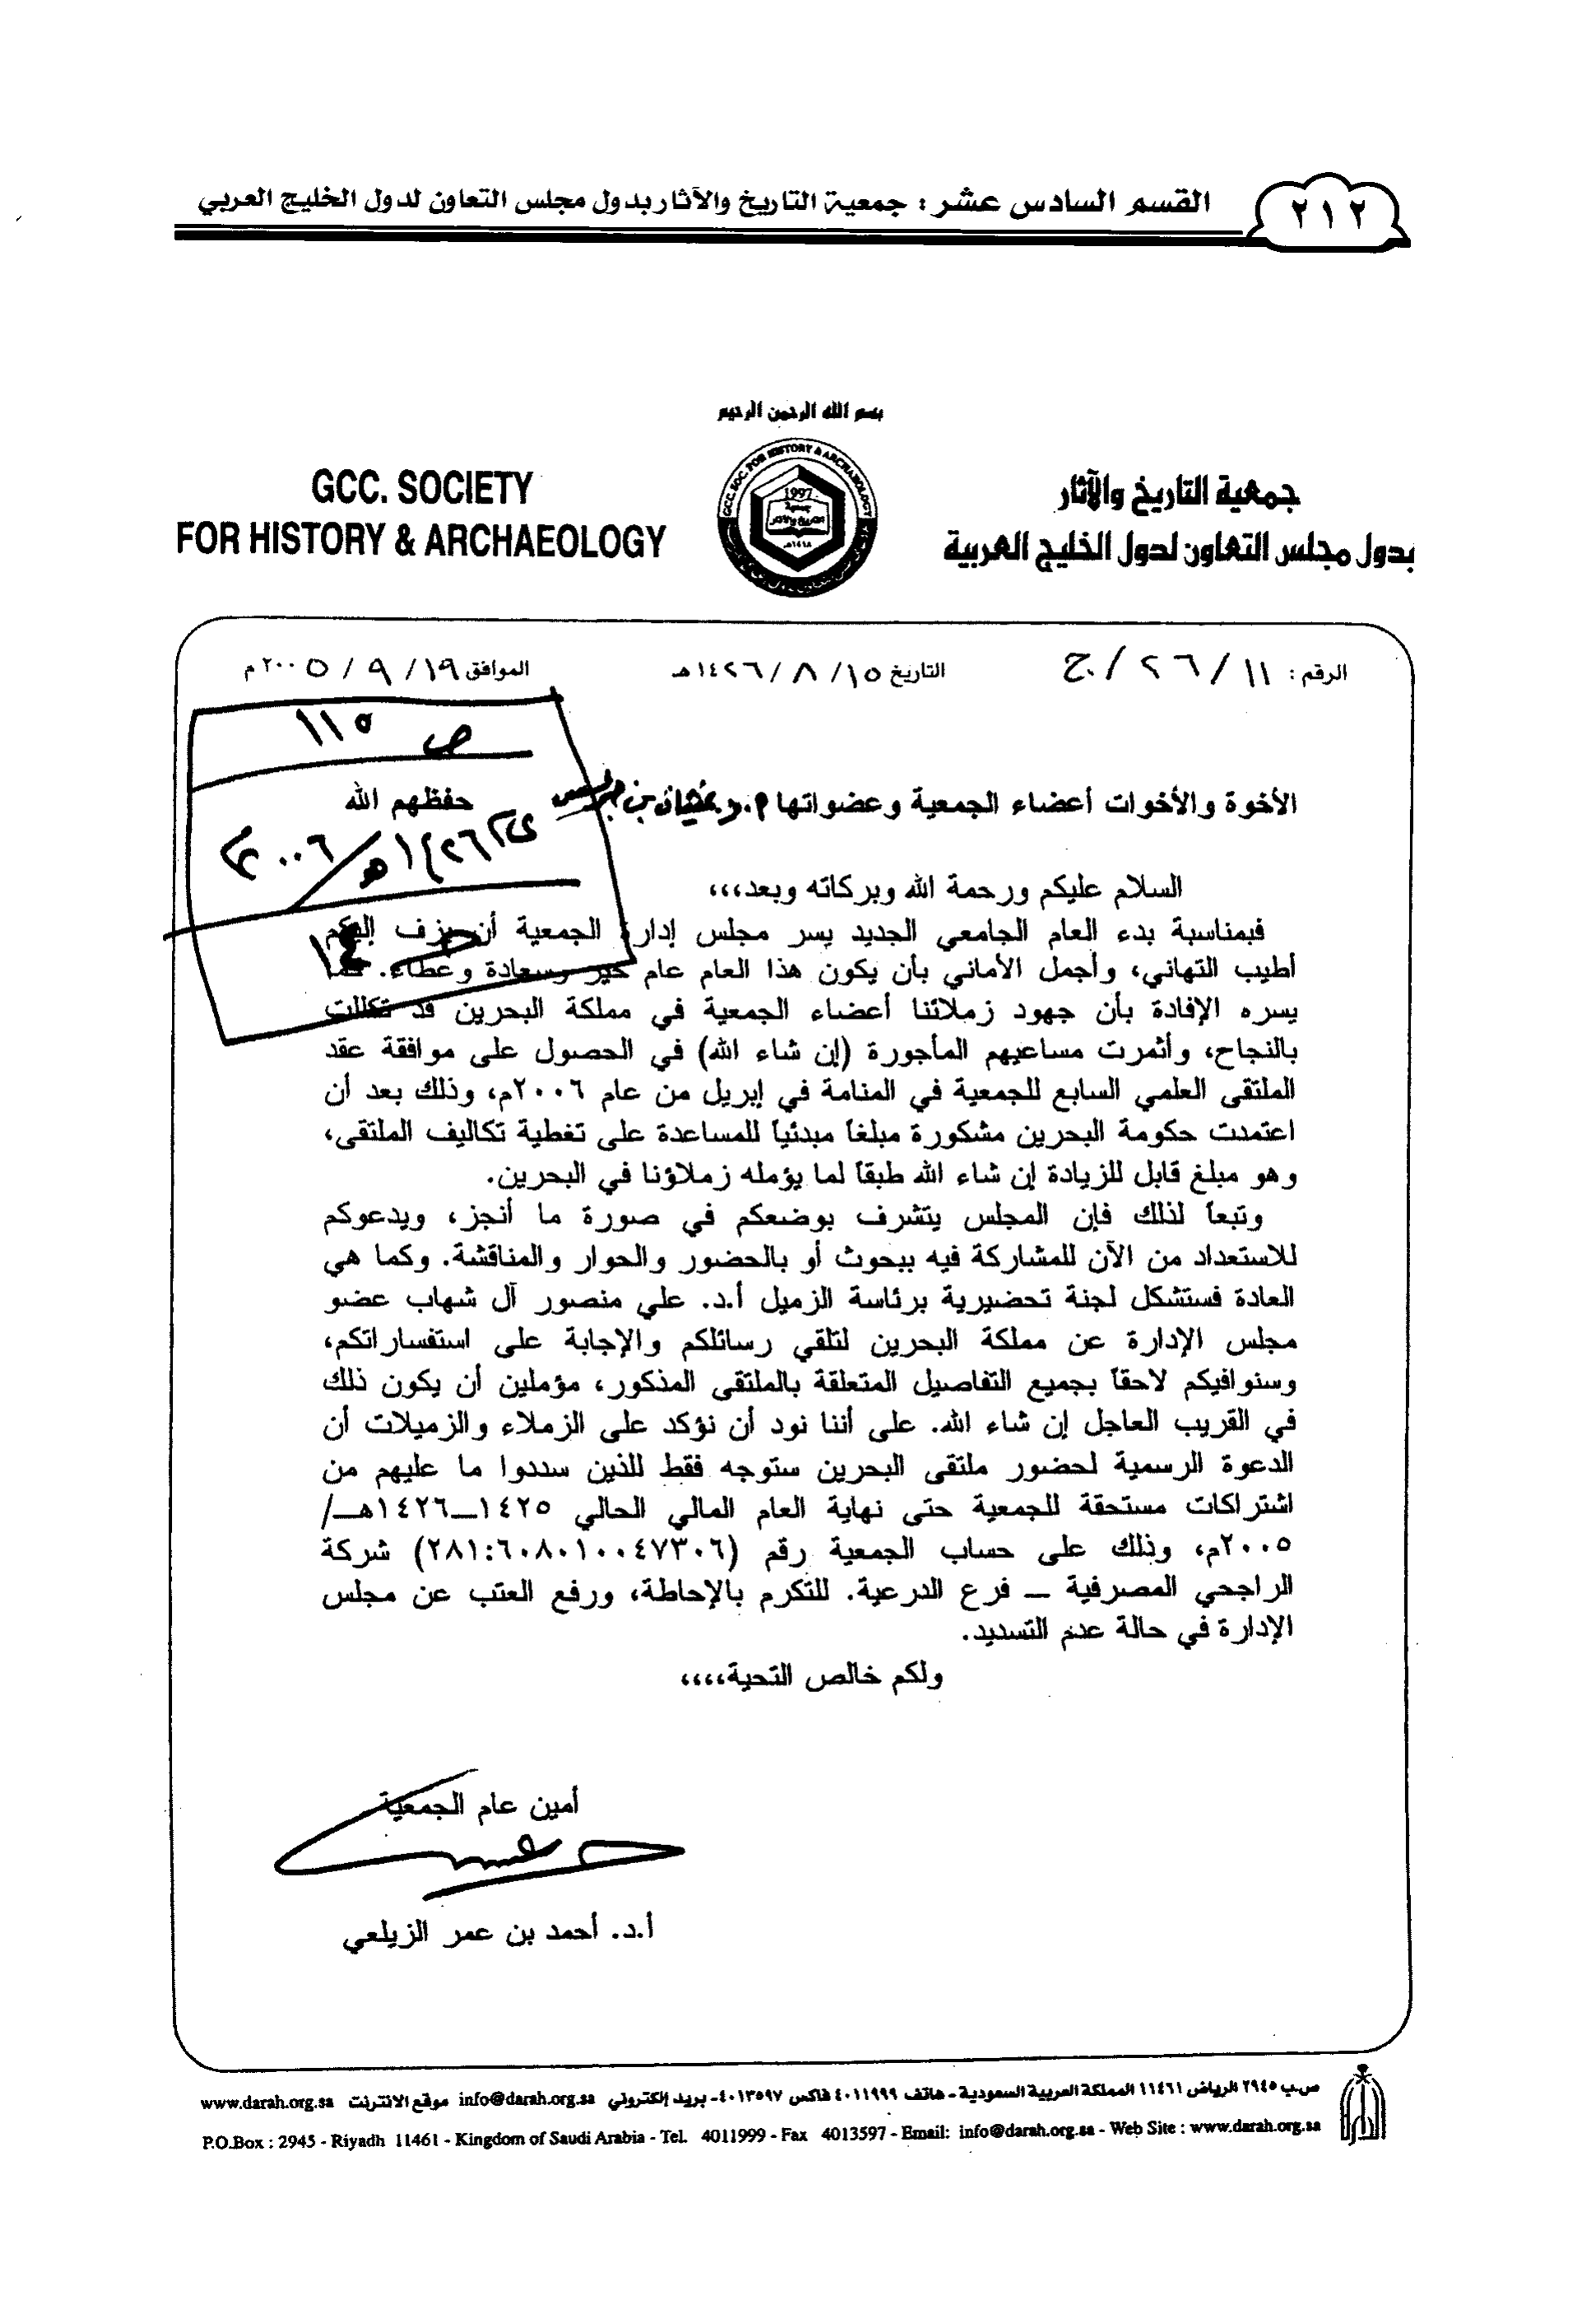 القسم السادس عشر : جمعية التاريخ والآثار بدول مجلس التعاون لدول الخليج العربي
٢١٢
بسم الله الرحمن الرحيم
GCC. SOCIETY
FOR HISTORY & ARCHAEOLOGY
GCC. SOC. FOR HISTORY & ARCHAEOLOGY
1997
جمعية
التاريخ والآثار
١٤١٨هـ
جمعية التاريخ والآثار
بدول مجلس التعاون لدول الخليج العربية
الرقم : ١١/ ٢٦/ ج
التاريخ ١٥/ ٨ /١٤٢٦هـ
الموافق ١٩/ ٩ / ٢٠٠٥م
ص ١١٥
الأخوة والأخوات أعضاء الجمعية وعضواتها حفظهم الله
١٤٢٦هـ/ ٢٠٠٦م
السلام عليكم ورحمة الله وبركاته وبعد،،،
فبمناسبة بدء العام الجامعي الجديد يسر مجلس إدارة الجمعية أن يزف إليكم
أطيب التهاني، وأجمل الأماني بأن يكون هذا العام عام خير وسعادة وعطاء. كما
يسره الإفادة بأن جهود زملائنا أعضاء الجمعية في مملكة البحرين قد تكللت
بالنجاح، وأثمرت مساعيهم المأجورة (إن شاء الله) في الحصول على موافقة عقد
الملتقى العلمي السابع للجمعية في المنامة في إبريل من عام ٢٠٠٦م، وذلك بعد أن
اعتمدت حكومة البحرين مشكورة مبلغاً مبدئياً للمساعدة على تغطية تكاليف الملتقى،
وهو مبلغ قابل للزيادة إن شاء الله طبقاً لما يؤمله زملاؤنا في البحرين.
وتبعاً لذلك فإن المجلس يتشرف بوضعكم في صورة ما أنجز، ويدعوكم
للاستعداد من الآن للمشاركة فيه ببحوث أو بالحضور والحوار والمناقشة. وكما هي
العادة فستشكل لجنة تحضيرية برئاسة الزميل أ.د. علي منصور آل شهاب عضو
مجلس الإدارة عن مملكة البحرين لتلقي رسائلكم والإجابة على استفساراتكم،
وسنوافيكم لاحقاً بجميع التفاصيل المتعلقة بالملتقى المذكور، مؤملين أن يكون ذلك
في القريب العاجل إن شاء الله. على أننا نود أن نؤكد على الزملاء والزميلات أن
الدعوة الرسمية لحضور ملتقى البحرين ستوجه فقط للذين سددوا ما عليهم من
اشتراكات مستحقة للجمعية حتى نهاية العام المالي الحالي ١٤٢٥ــ١٤٢٦هــ/
٢٠٠٥م، وذلك على حساب الجمعية رقم (٢٨١:٦٠٨٠١٠٠٤٧٣٠٦) شركة
الراجحي المصرفية ــ فرع الدرعية. للتكرم بالإحاطة، ورفع العتب عن مجلس
الإدارة في حالة عدم التسديد.
ولكم خالص التحية،،،،
أمين عام الجمعية
أ.د. أحمد بن عمر الزيلعي
ص.ب ٢٩٤٥ الرياض ١١٤٦١ المملكة العربية السعودية - هاتف ٤٠١١٩٩٩ فاكس ٤٠١٣٥٩٧ - بريد إلكتروني info@darah.org.sa موقع الانترنت www.darah.org.sa
P.O.Box : 2945 - Riyadh 11461 - Kingdom of Saudi Arabia - Tel. 4011999 - Fax 4013597 - Email: info@darah.org.sa - Web Site : www.darah.org.sa